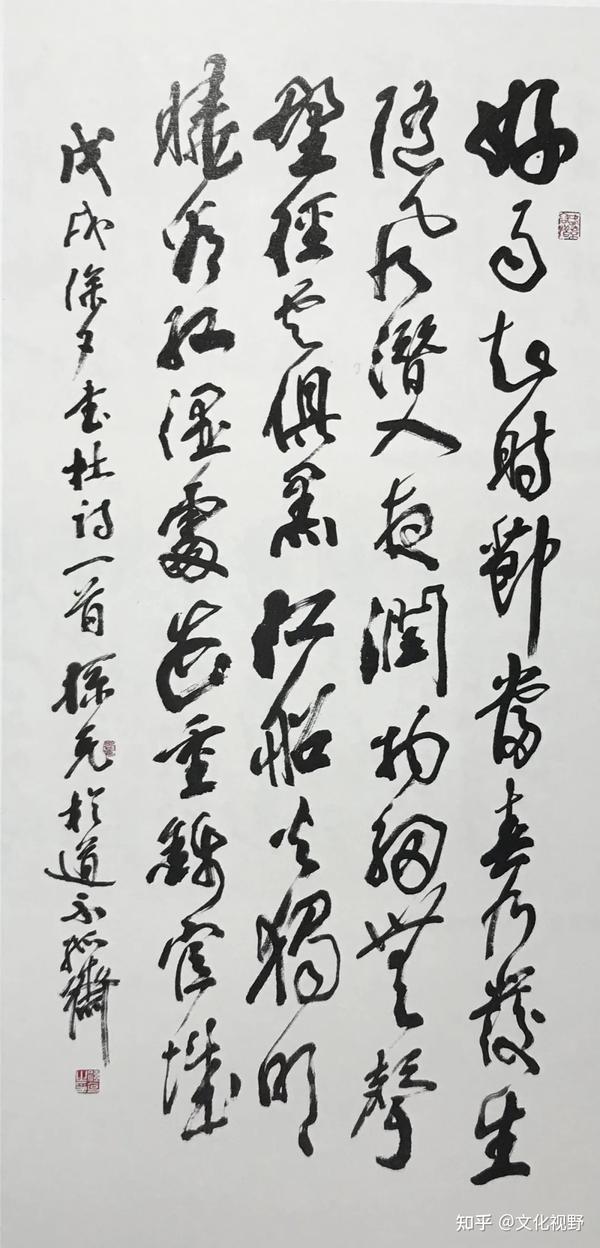 好雨知時節當春乃發生
隨風潛入夜潤物細無聲
野徑云俱黑江船火獨明
曉看紅濕處花重錦官城
戊戌除夕書杜詩一首元於道不孤齋
知乎 @文化视野